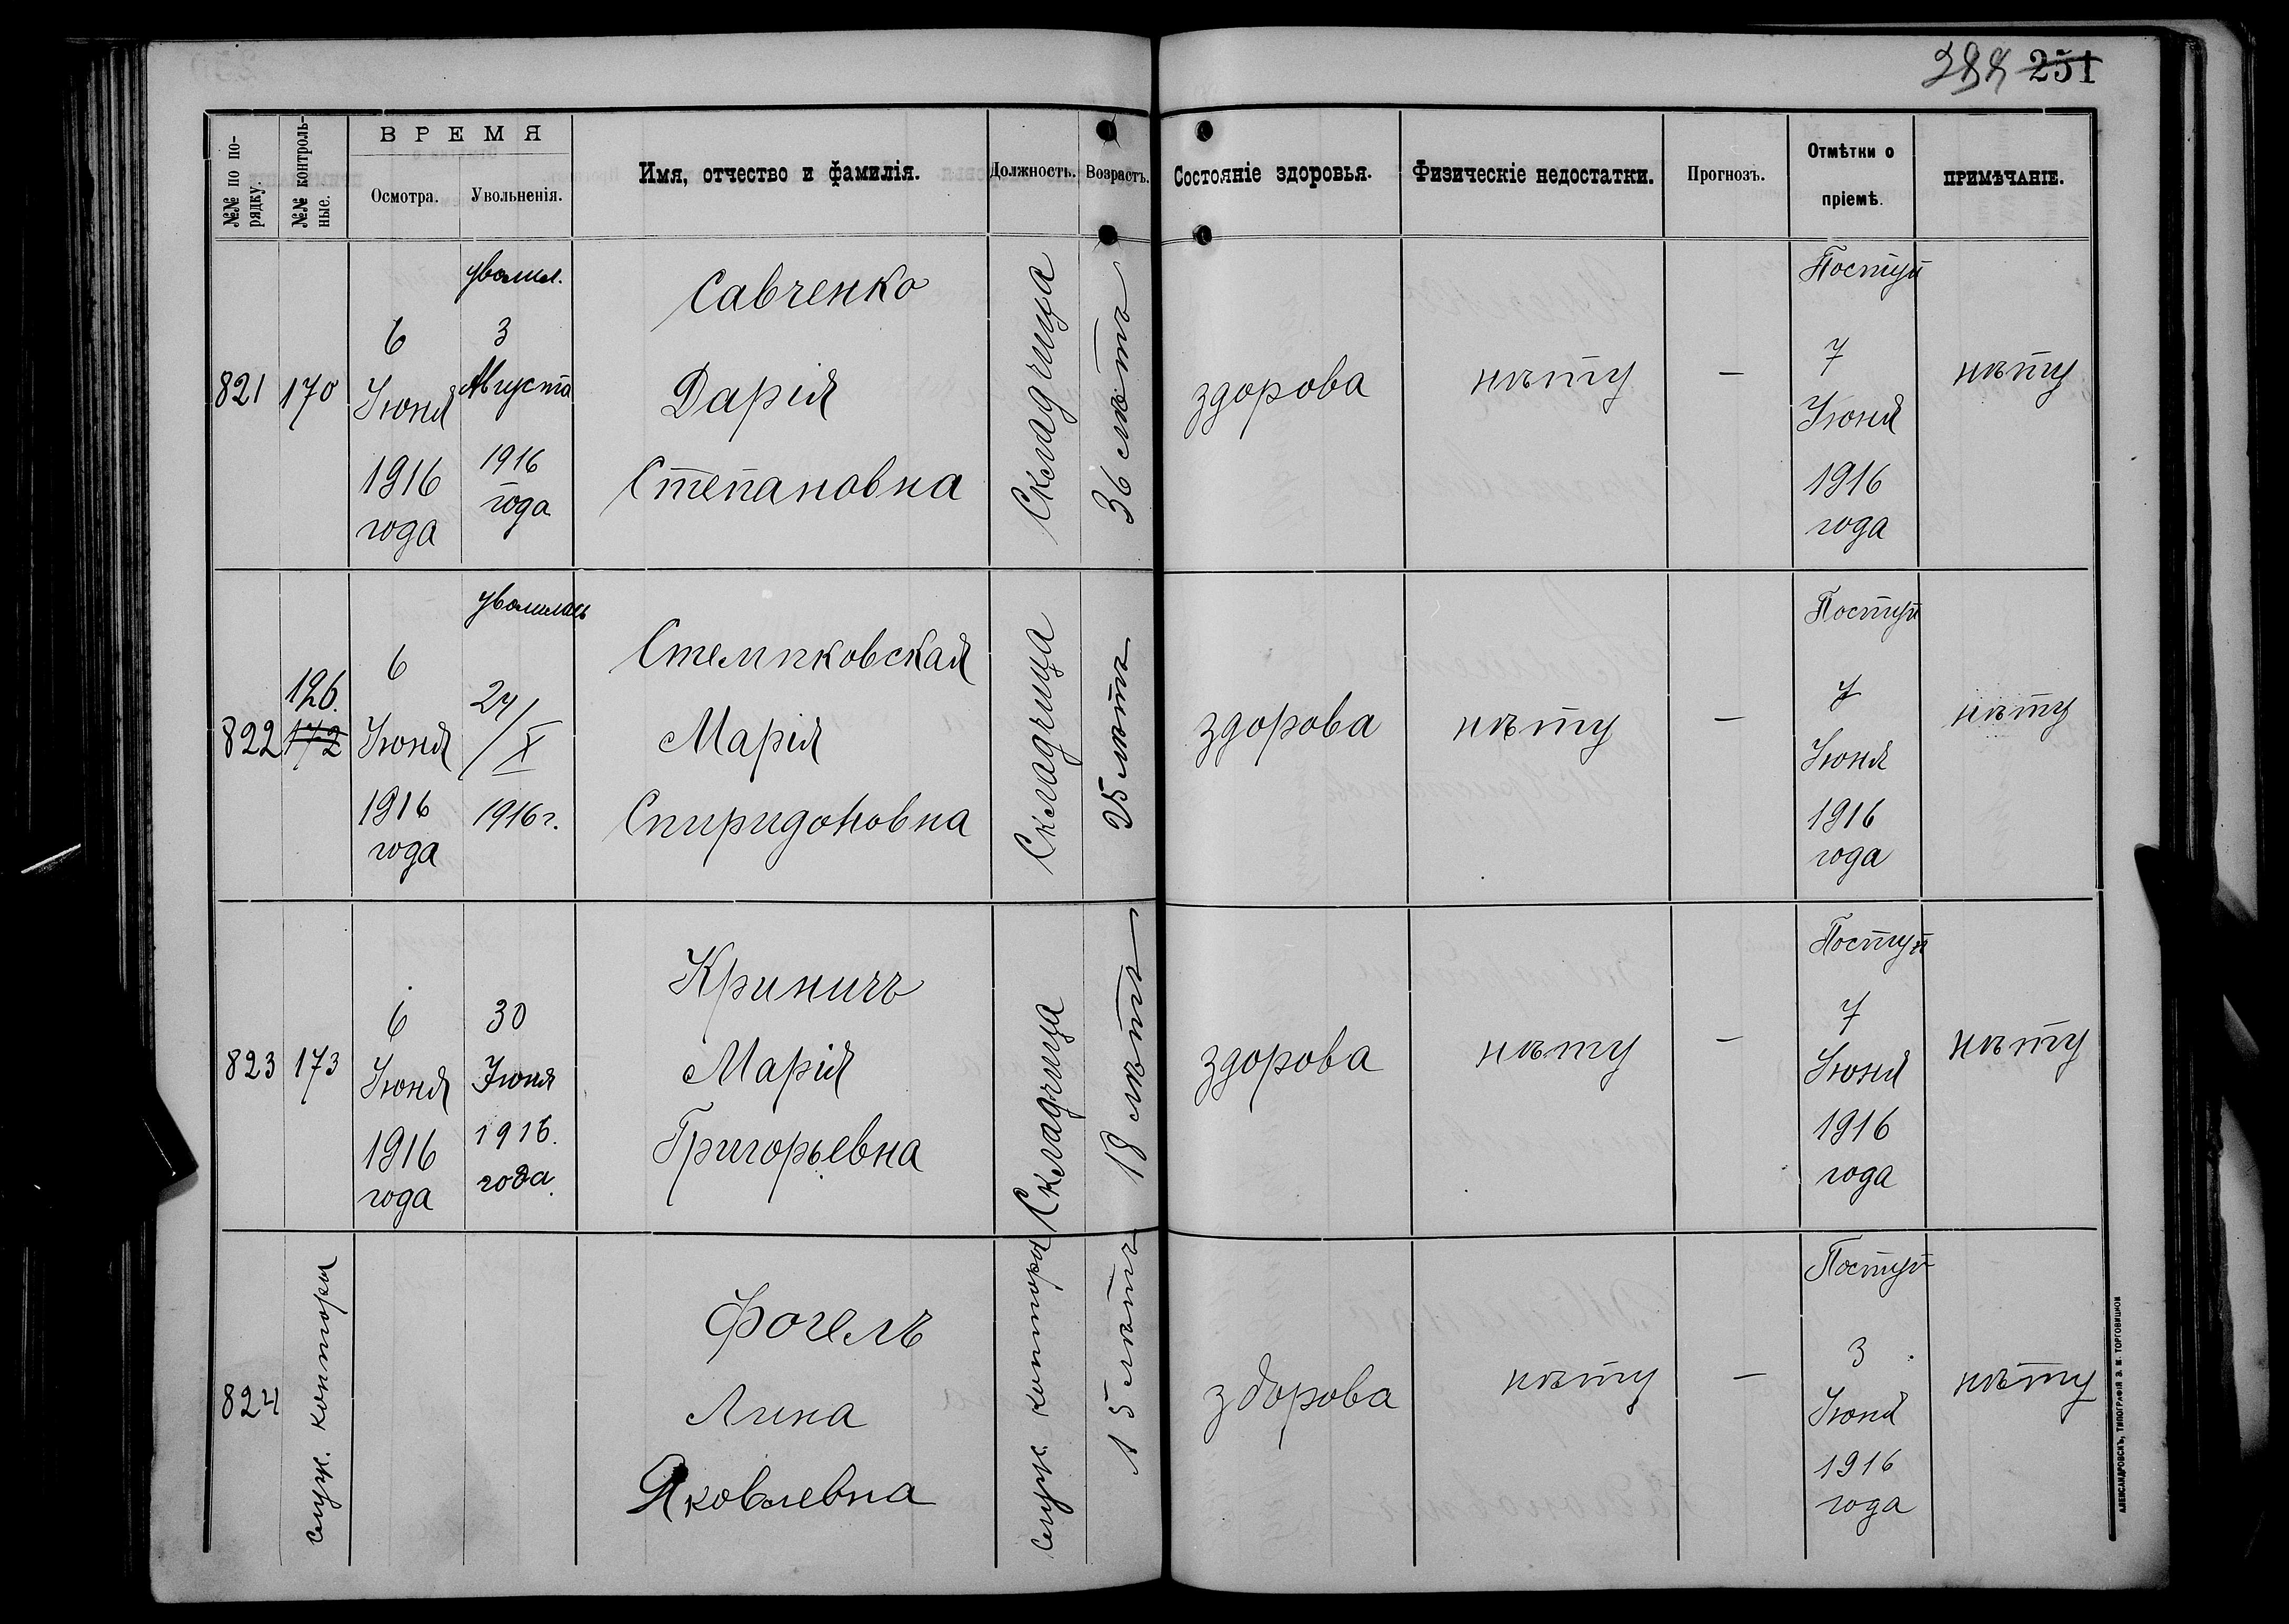 251
№№ по по-
рядку.
№№ контроль-
ные.
ВРЕМЯ
Осмотра.
Увольненія.
Имя, отчество и фамилія.
Должность.
Возрастъ.
Состояніе здоровья.
Физическіе недостатки.
Прогнозъ.
Отмѣтки о
пріемѣ.
ПРИМѢЧАНІЕ.
821
170
6
Іюня
1916
года
уволил.
3
Августа
1916
года
Савченко
Дарія
Степановна
Складчица
36 лѣтъ
здорова
нѣту
—
Поступ
7
Іюня
1916
года
нѣту
822
126.
172
6
Іюня
1916
года
уволилась
24/X
1916 г.
Стемпковская
Марія
Спиридоновна
Складчица
25 лѣтъ
здорова
нѣту
—
Поступ
7
Іюня
1916
года
нѣту
823
173
6
Іюня
1916
года
30
Іюня
1916.
года.
Криничъ
Марія
Григорьевна
Складчица
18 лѣтъ
здорова
нѣту
—
Поступ
7
Іюня
1916
года
нѣту
824
служ. конторы
Фогель
Лина
Яковлевна
служ. конторы
15 лѣтъ
здорова
нѣту
—
Поступ
3
Іюня
1916
года
нѣту
АЛЕКСАНДРОВСКЪ, ТИПОГРАФІЯ З. М. ТОРГОВИЦКОЙ